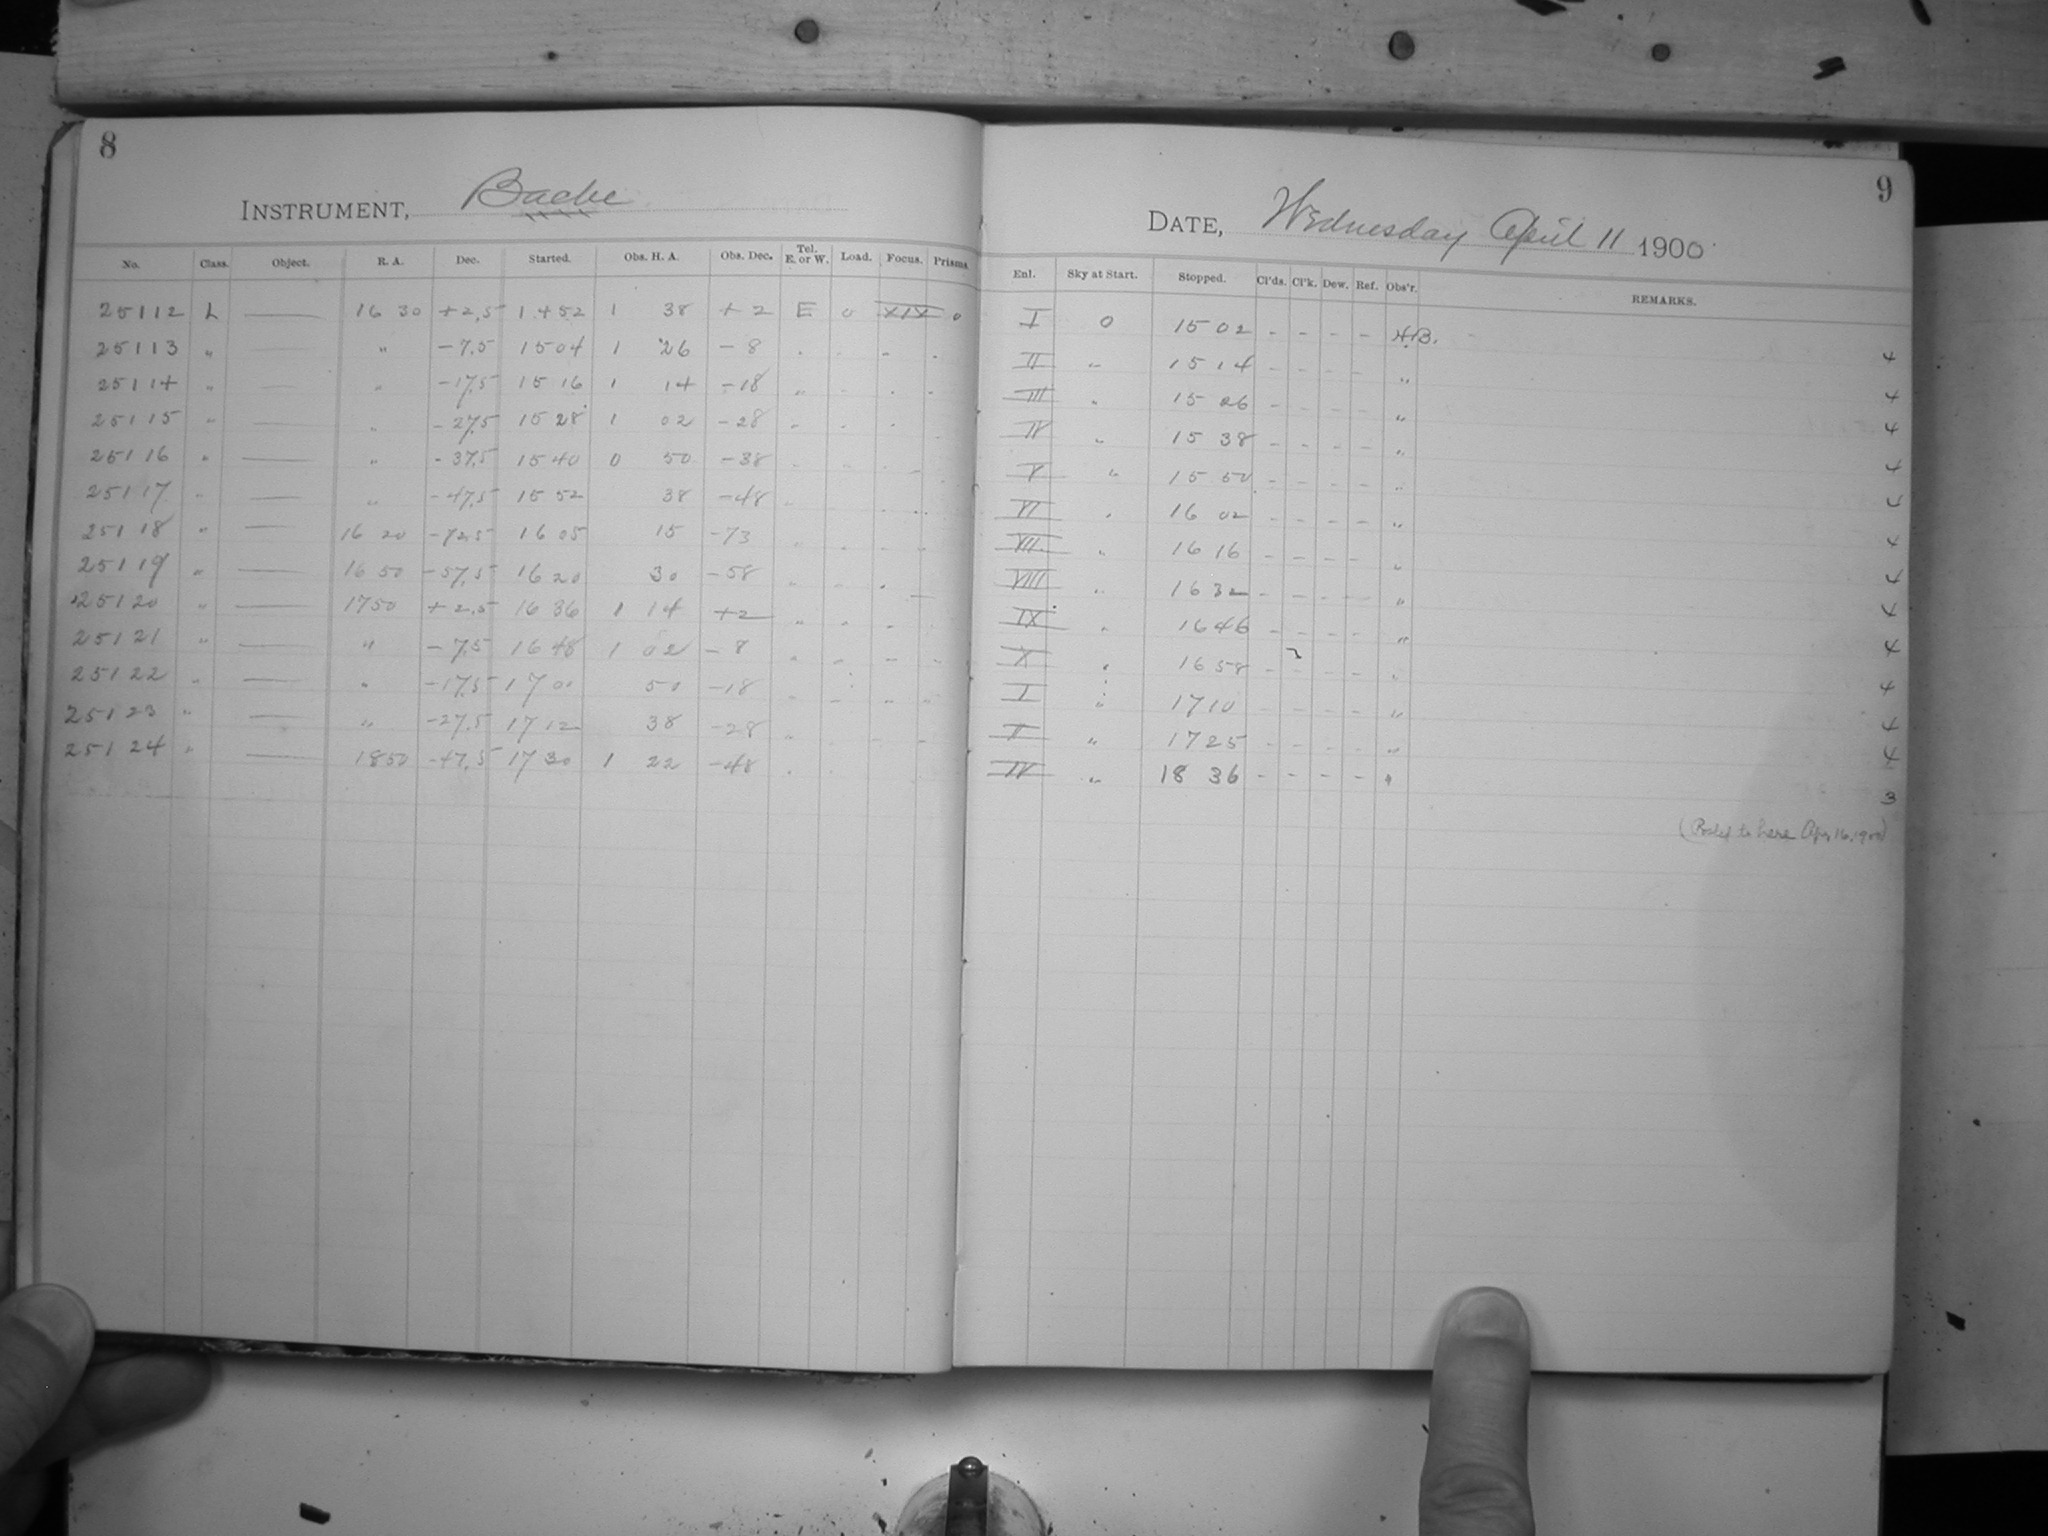 8
INSTRUMENT, Bache
No. Class. Object. R. A. Dec. Started. Obs. H. A. Obs. Dec. Tel. E. or W. Load. Focus. Prisms.
25112 L — 16 30 +2.5 1452 1 38 +2 E 0 XIX 0
25113 " — " -7.5 1504 1 26 -8 " " " "
25114 " — " -17.5 15 16 1 14 -18 " " " "
25115 " — " -27.5 15 28 1 02 -28 " " " "
25116 " — " -37.5 15 40 0 50 -38 " " " "
25117 " — " -47.5 15 52 38 -48 " " " "
25118 " — 16 20 -72.5 16 05 15 -73 " " " "
25119 " — 16 50 -57.5 16 20 30 -58 " " " "
25120 " — 1750 +2.5 16 36 1 14 +2 " " " "
25121 " — " -7.5 16 48 1 02 -8 " " " "
25122 " — " -17.5 17 00 50 -18 " " " "
25123 " — " -27.5 17 12 38 -28 " " " "
25124 " — 1850 -47.5 17 30 1 22 -48 " " " "
9
DATE, Wednesday April 11 1900
Enl. Sky at Start. Stopped. Cl'ds. Cl'k. Dew. Ref. Obs'r. REMARKS.
I 0 15 02 - - - - H.B. 4
II " 15 14 - - - - " 4
III " 15 26 - - - - " 4
IV " 15 38 - - - - " 4
V " 15 50 - - - - " 4
VI " 16 02 - - - - " 4
VII " 16 16 - - - - " 4
VIII " 16 32 - - - - " 4
IX " 16 46 - - - - " 4
X " 16 58 - - - - " 4
I " 17 10 - - - - " 4
II " 17 25 - - - - " 4
IV " 18 36 - - - - " 3
(Posted to here Apr 16, 1900)